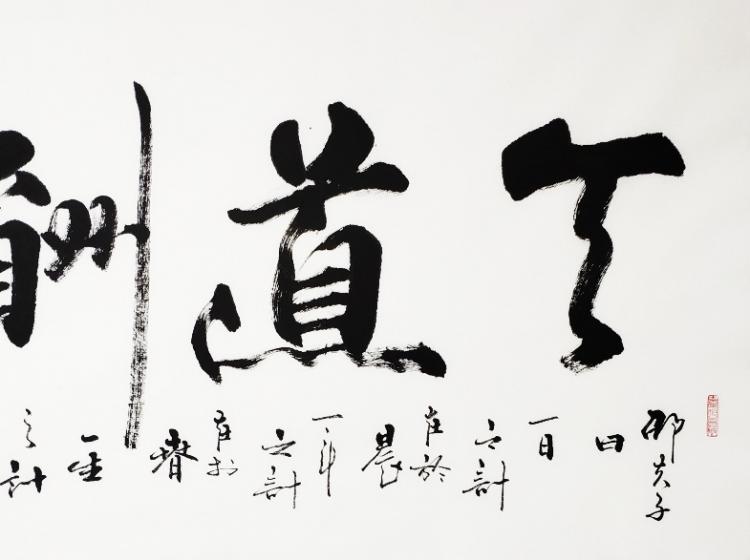 天道酬
邵夫子
曰
一日
之計
在於
晨
一年
之計
在於
春
一生
之計